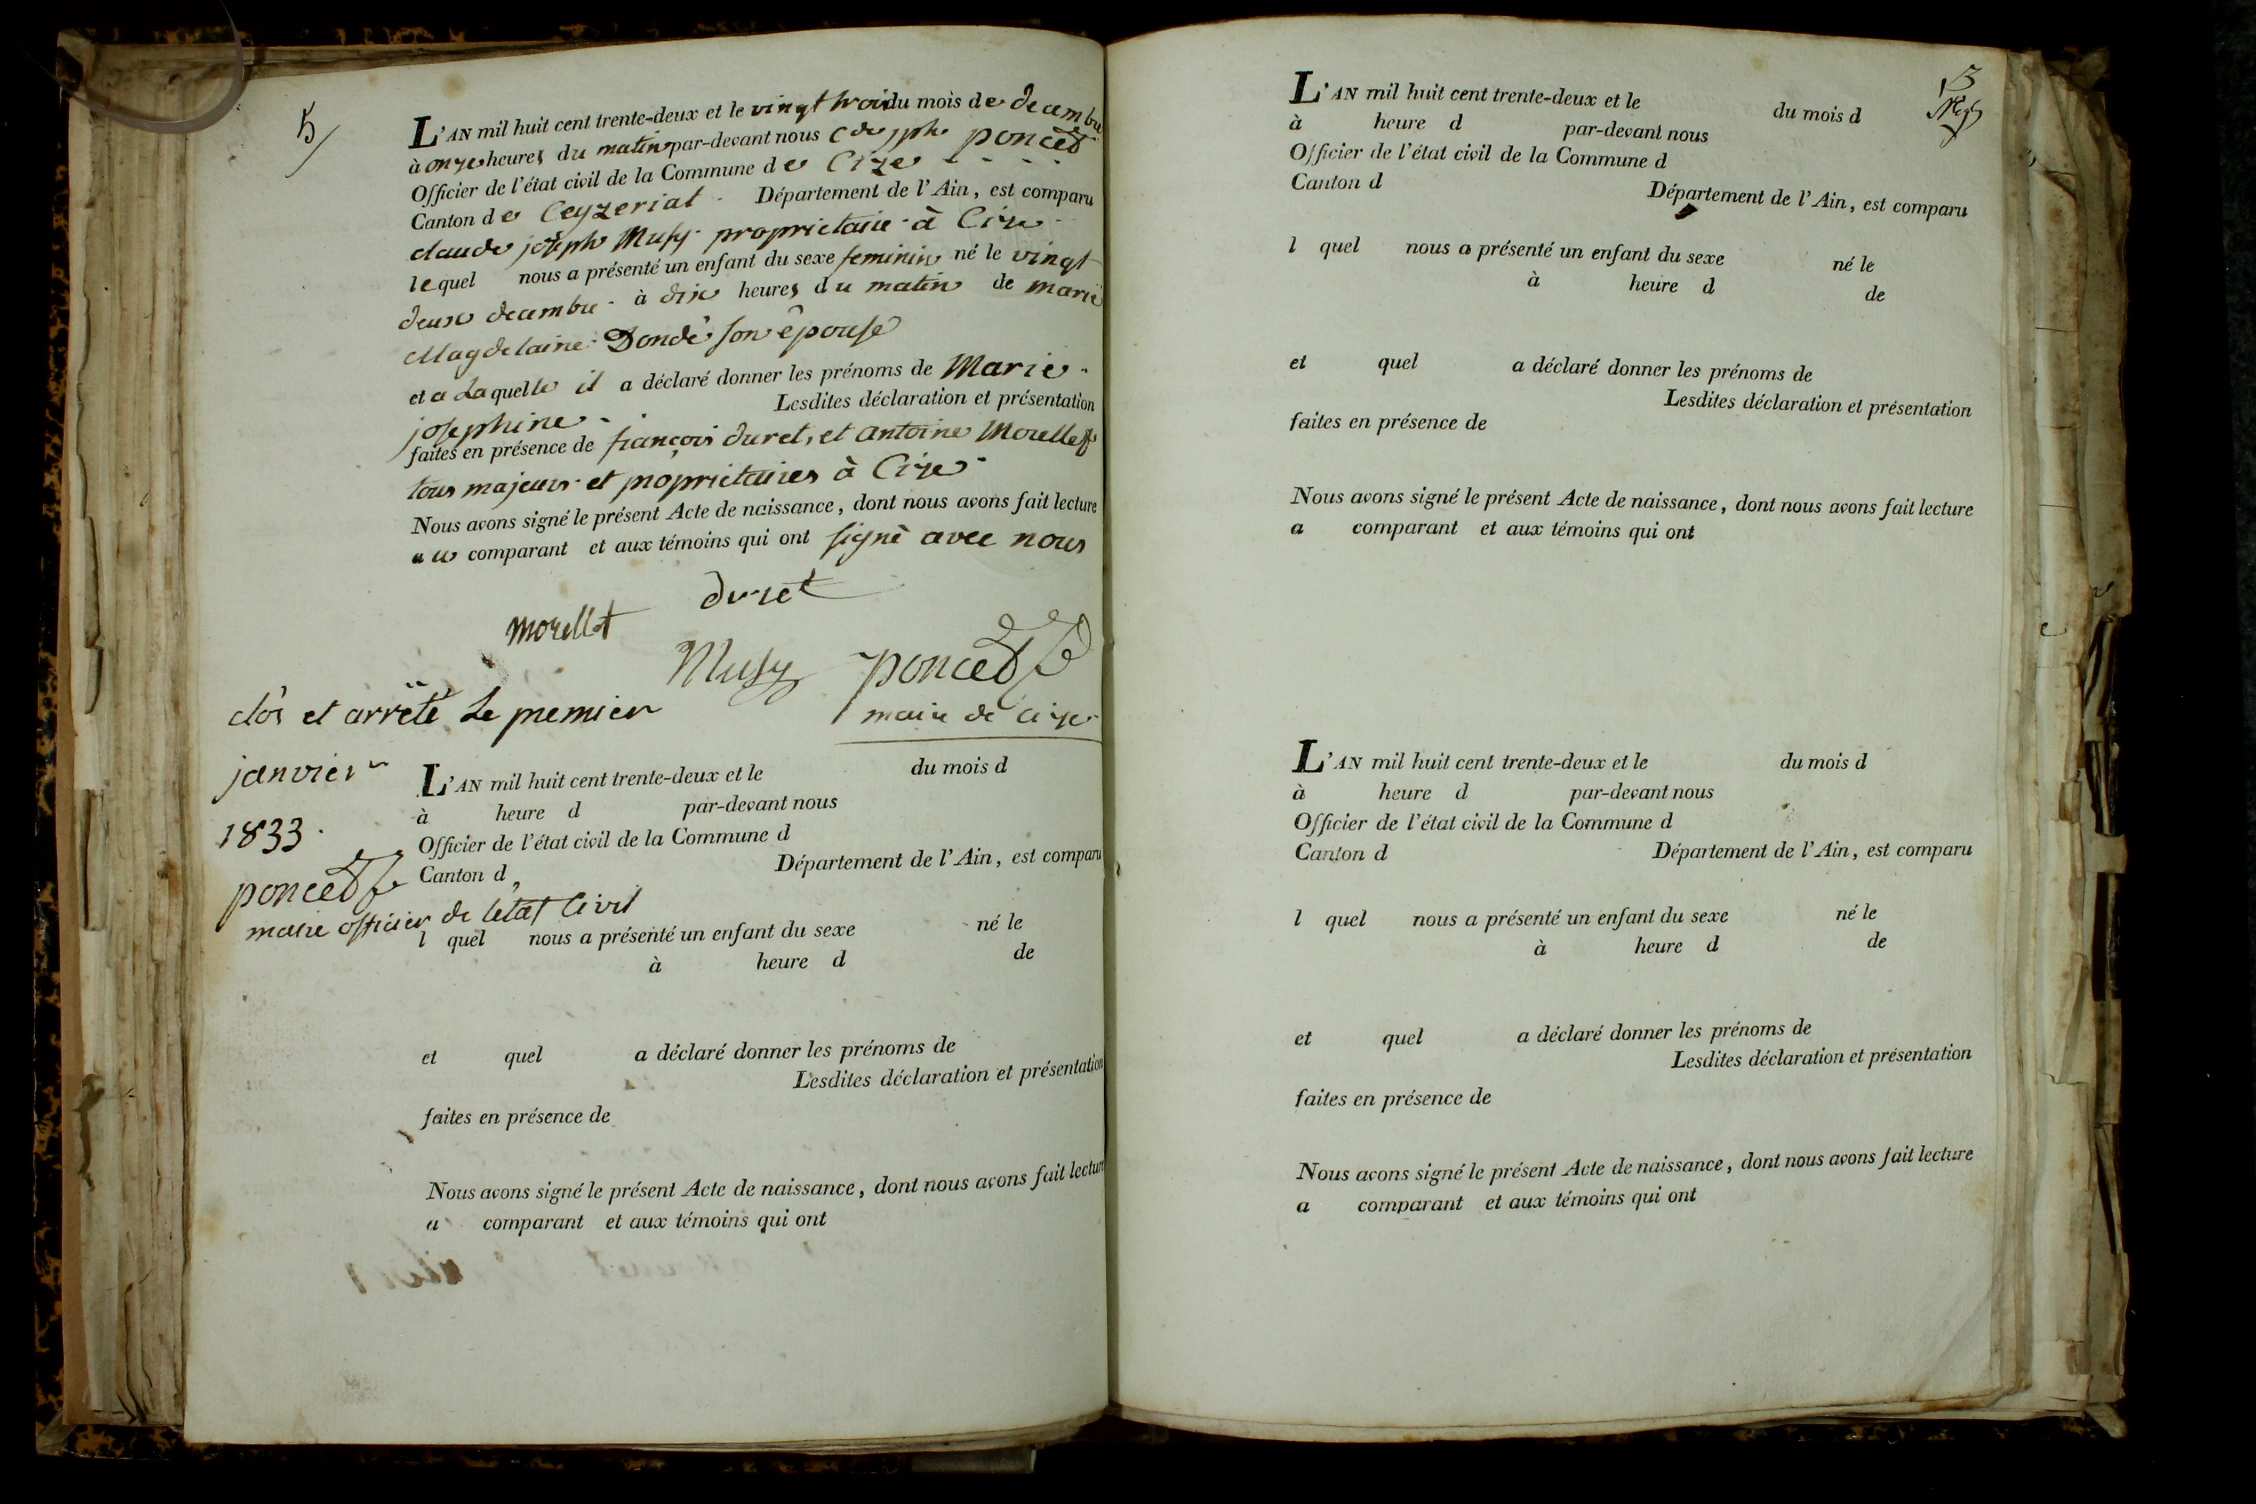 5/
L'AN mil huit cent trente-deux et le vingt trois du mois de decembre
à onze heures du matin par-devant nous Cde jph poncet
Officier de l'état civil de la Commune de Cize - - - -
Canton de Ceyzeriat - Département de l'Ain, est comparu
claude joseph Musy - proprietaire - à Cize -
lequel nous a présenté un enfant du sexe feminin né le vingt
deux decembre - à dix heures du matin de marie
Magdelaine Dondé son épouse
et a Laquelle il a déclaré donner les prénoms de Marie -
Lesdites déclaration et présentation
josephine -
faites en présence de françois duret, et antoine Morellet
tous majeurs et proprietaires à Cize -
Nous avons signé le présent Acte de naissance, dont nous avons fait lecture
au comparant et aux témoins qui ont signé avec nous
duret
morellet
Musy poncet
maire de Cize
clos et arrêté Le premier
janvier
1833.
poncet
maire officier de létat Civil
L'AN mil huit cent trente-deux et le du mois d
à heure d par-devant nous
Officier de l'état civil de la Commune d
Canton d Département de l'Ain, est comparu
l quel nous a présenté un enfant du sexe né le
à heure d de
et quel a déclaré donner les prénoms de
Lesdites déclaration et présentation
faites en présence de
Nous avons signé le présent Acte de naissance, dont nous avons fait lecture
a comparant et aux témoins qui ont
3
L'AN mil huit cent trente-deux et le du mois d
à heure d par-devant nous
Officier de l'état civil de la Commune d
Canton d Département de l'Ain, est comparu
l quel nous a présenté un enfant du sexe né le
à heure d de
et quel a déclaré donner les prénoms de
Lesdites déclaration et présentation
faites en présence de
Nous avons signé le présent Acte de naissance, dont nous avons fait lecture
a comparant et aux témoins qui ont
L'AN mil huit cent trente-deux et le du mois d
à heure d par-devant nous
Officier de l'état civil de la Commune d
Canton d Département de l'Ain, est comparu
l quel nous a présenté un enfant du sexe né le
à heure d de
et quel a déclaré donner les prénoms de
Lesdites déclaration et présentation
faites en présence de
Nous avons signé le présent Acte de naissance, dont nous avons fait lecture
a comparant et aux témoins qui ont